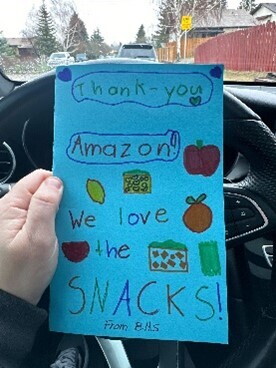 Thank-you
Amazon!
We love
the
SNACKS!
From B.A.S.